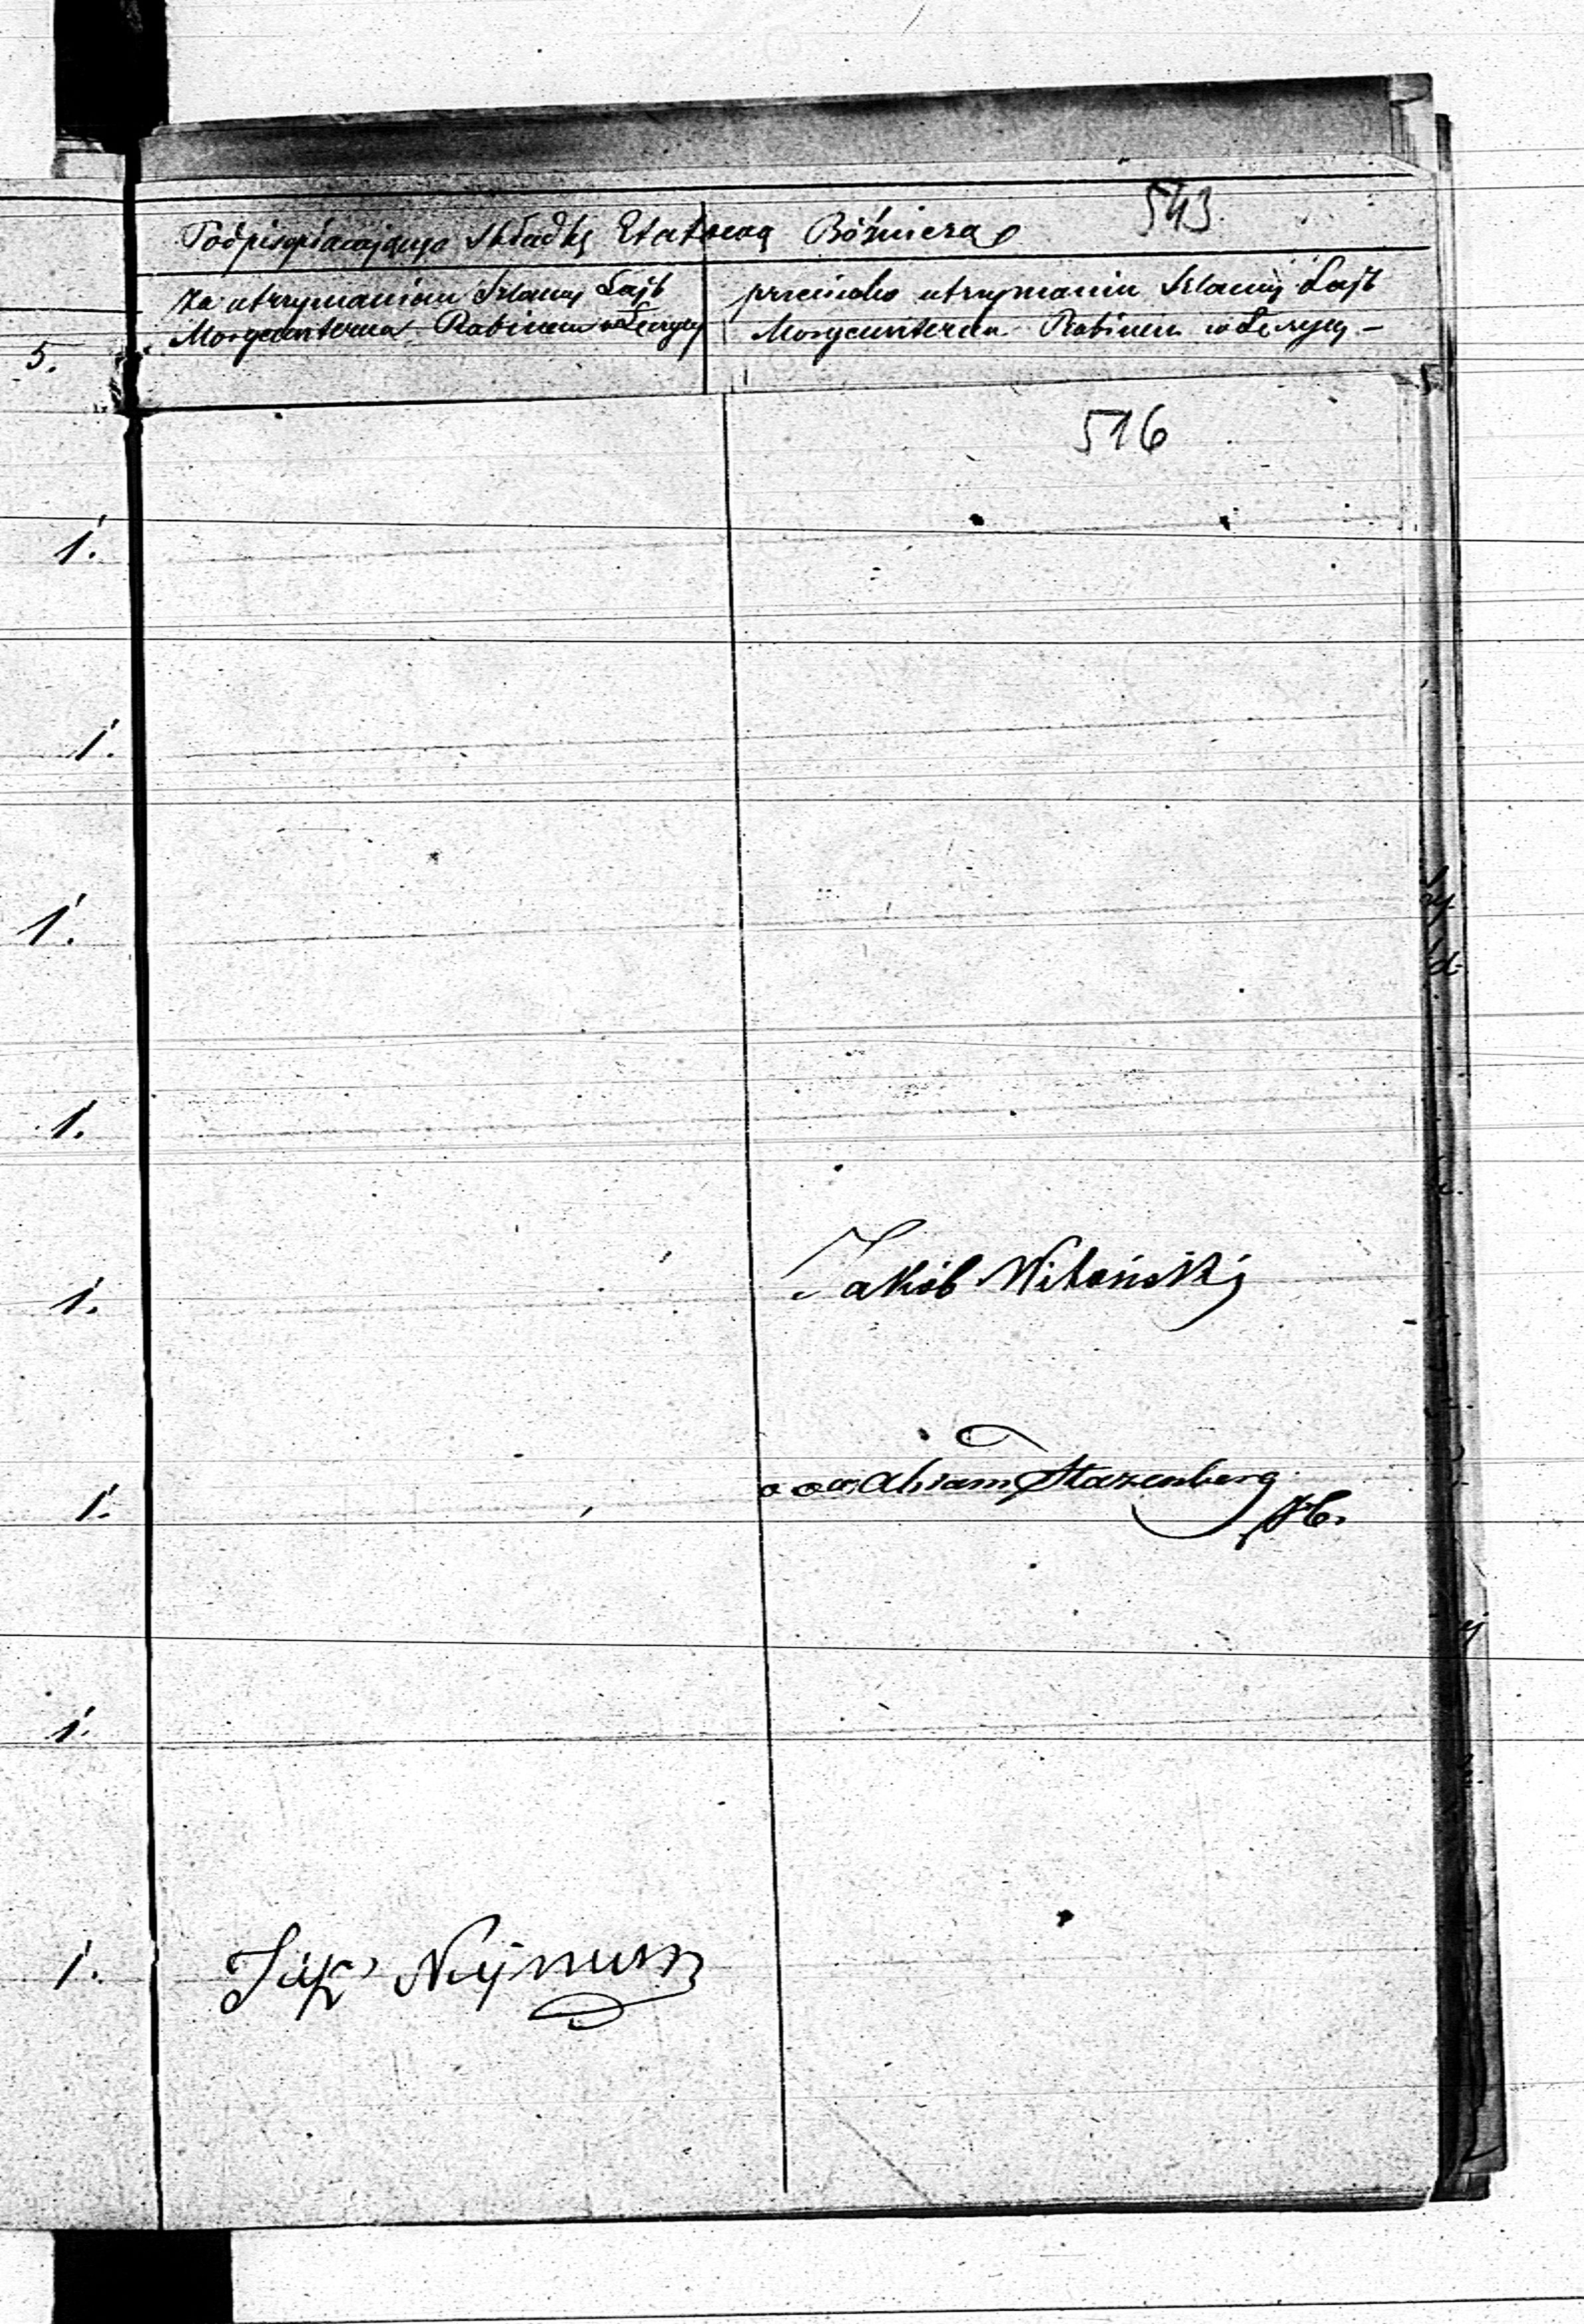 543
Podpis opłacającego składkę Etatową Bóżniczą
za utrzymaniem Szlamy Lajb
Morgensterna Rabinem w Łęczycy
przeciwko utrzymaniu Szlamy Lajb
Morgensterna Rabinem w Łęczycy -
5.
516
1.
1.
1.
1.
1. Jakób Wikoński
1. Abram Starenberg
1.
1. Najman